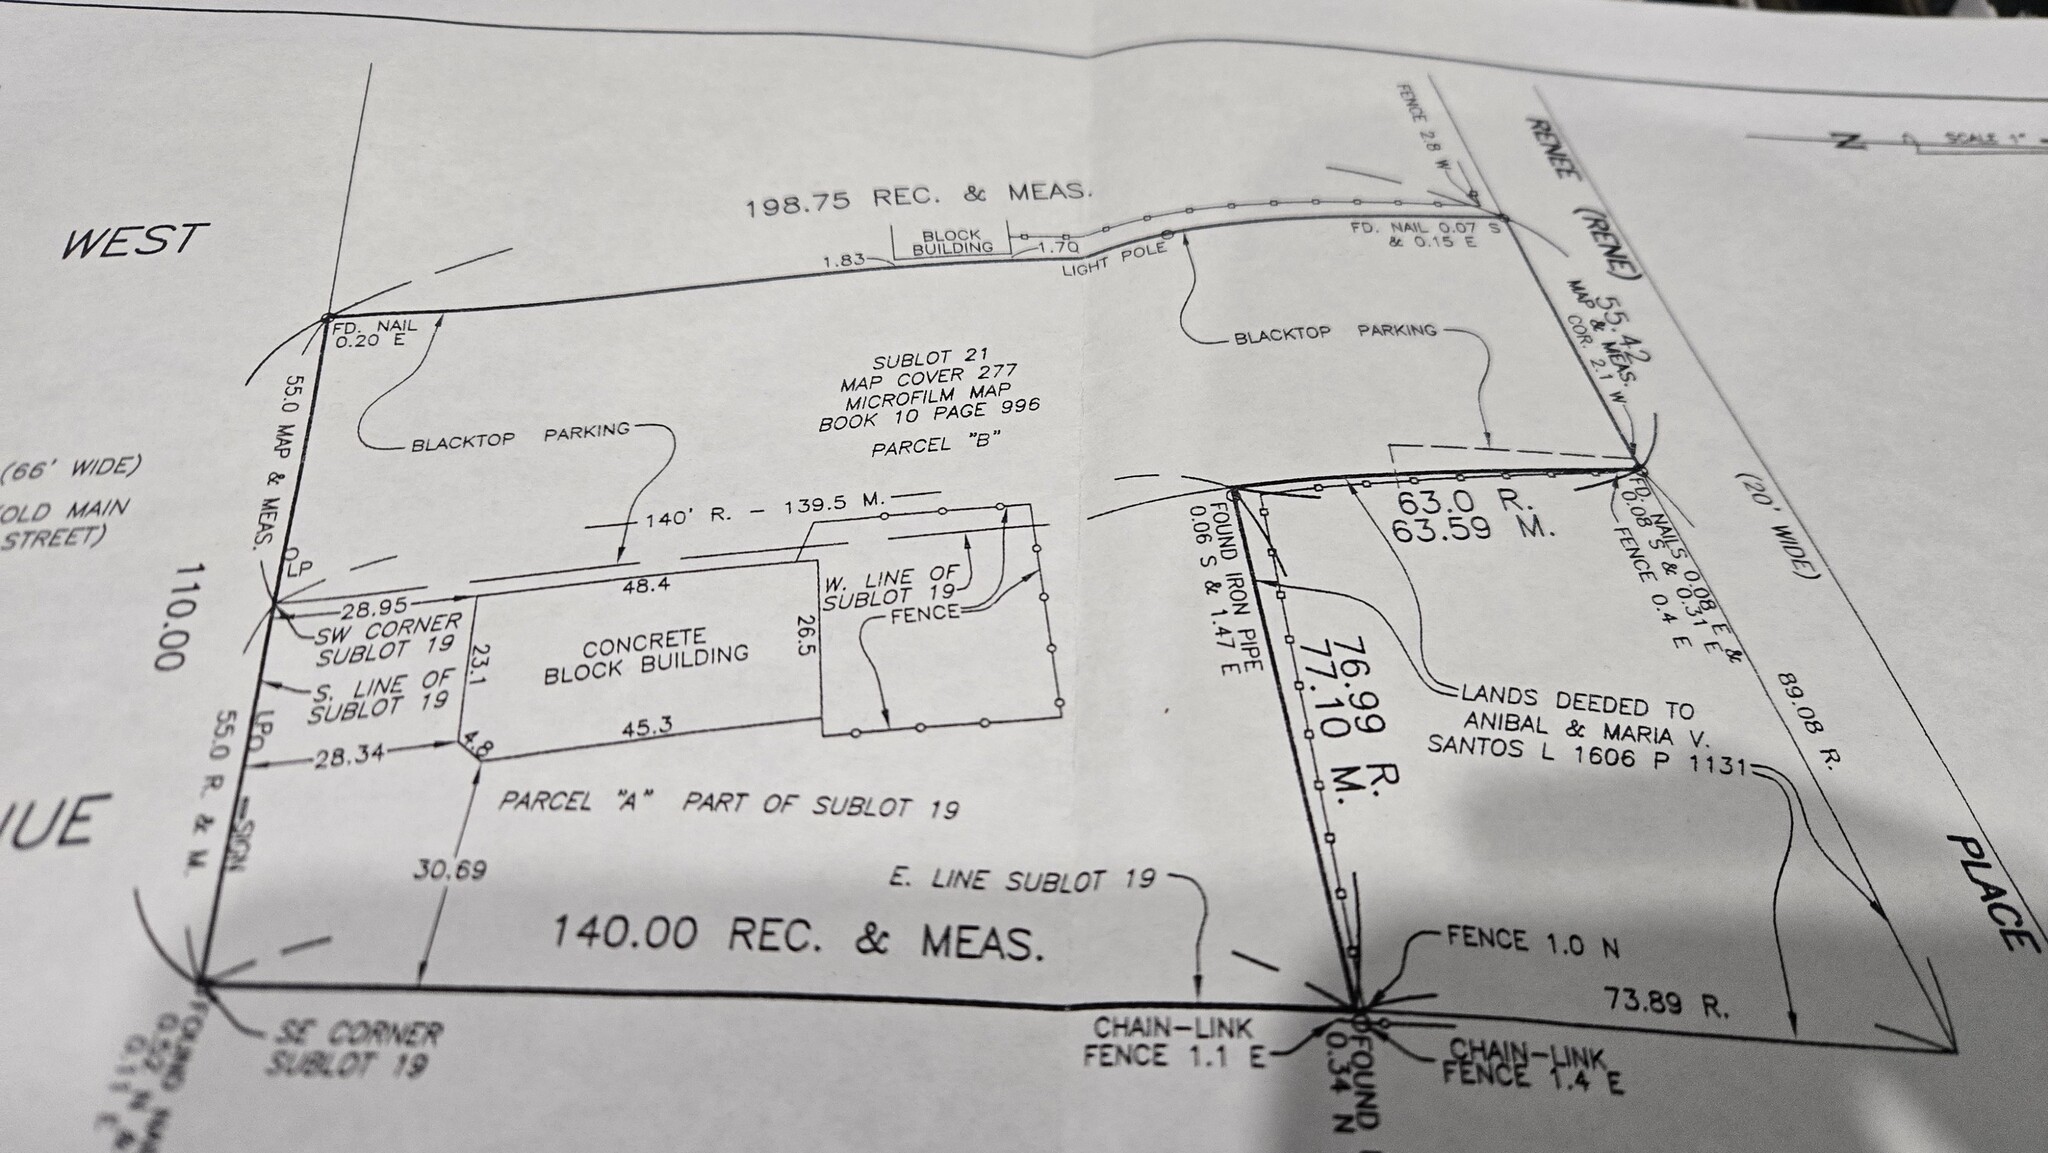 WEST
(66' WIDE)
(OLD MAIN
STREET)
UE
110.00
55.0 MAP & MEAS.
55.0 R. & M.
FD. NAIL
0.20 E
198.75 REC. & MEAS.
BLOCK
BUILDING
1.83
1.70
LIGHT POLE
FENCE 2.8 W
FD. NAIL 0.07 S
& 0.15 E
RENEE (RENE)
(20' WIDE)
PLACE
N
SCALE 1"
55.42
MAP & MEAS.
COR. 2.1 W
BLACKTOP PARKING
BLACKTOP PARKING
SUBLOT 21
MAP COVER 277
MICROFILM MAP
BOOK 10 PAGE 996
PARCEL "B"
140' R. - 139.5 M.
LP
28.95
48.4
SW CORNER
SUBLOT 19
S. LINE OF
SUBLOT 19
LP
28.34
23.1
4.8
CONCRETE
BLOCK BUILDING
26.5
45.3
W. LINE OF
SUBLOT 19
FENCE
63.0 R.
63.59 M.
FD. NAILS 0.08 E &
0.08 S & 0.31 E
FENCE 0.4 E
FOUND IRON PIPE
0.06 S & 1.47 E
76.99 R.
77.10 M.
LANDS DEEDED TO
ANIBAL & MARIA V.
SANTOS L 1606 P 1131
89.08 R.
SIGN
PARCEL "A" PART OF SUBLOT 19
30.69
E. LINE SUBLOT 19
140.00 REC. & MEAS.
FENCE 1.0 N
73.89 R.
SE CORNER
SUBLOT 19
CHAIN-LINK
FENCE 1.1 E
CHAIN-LINK
FENCE 1.4 E
FOUND
0.34 N
FOUND